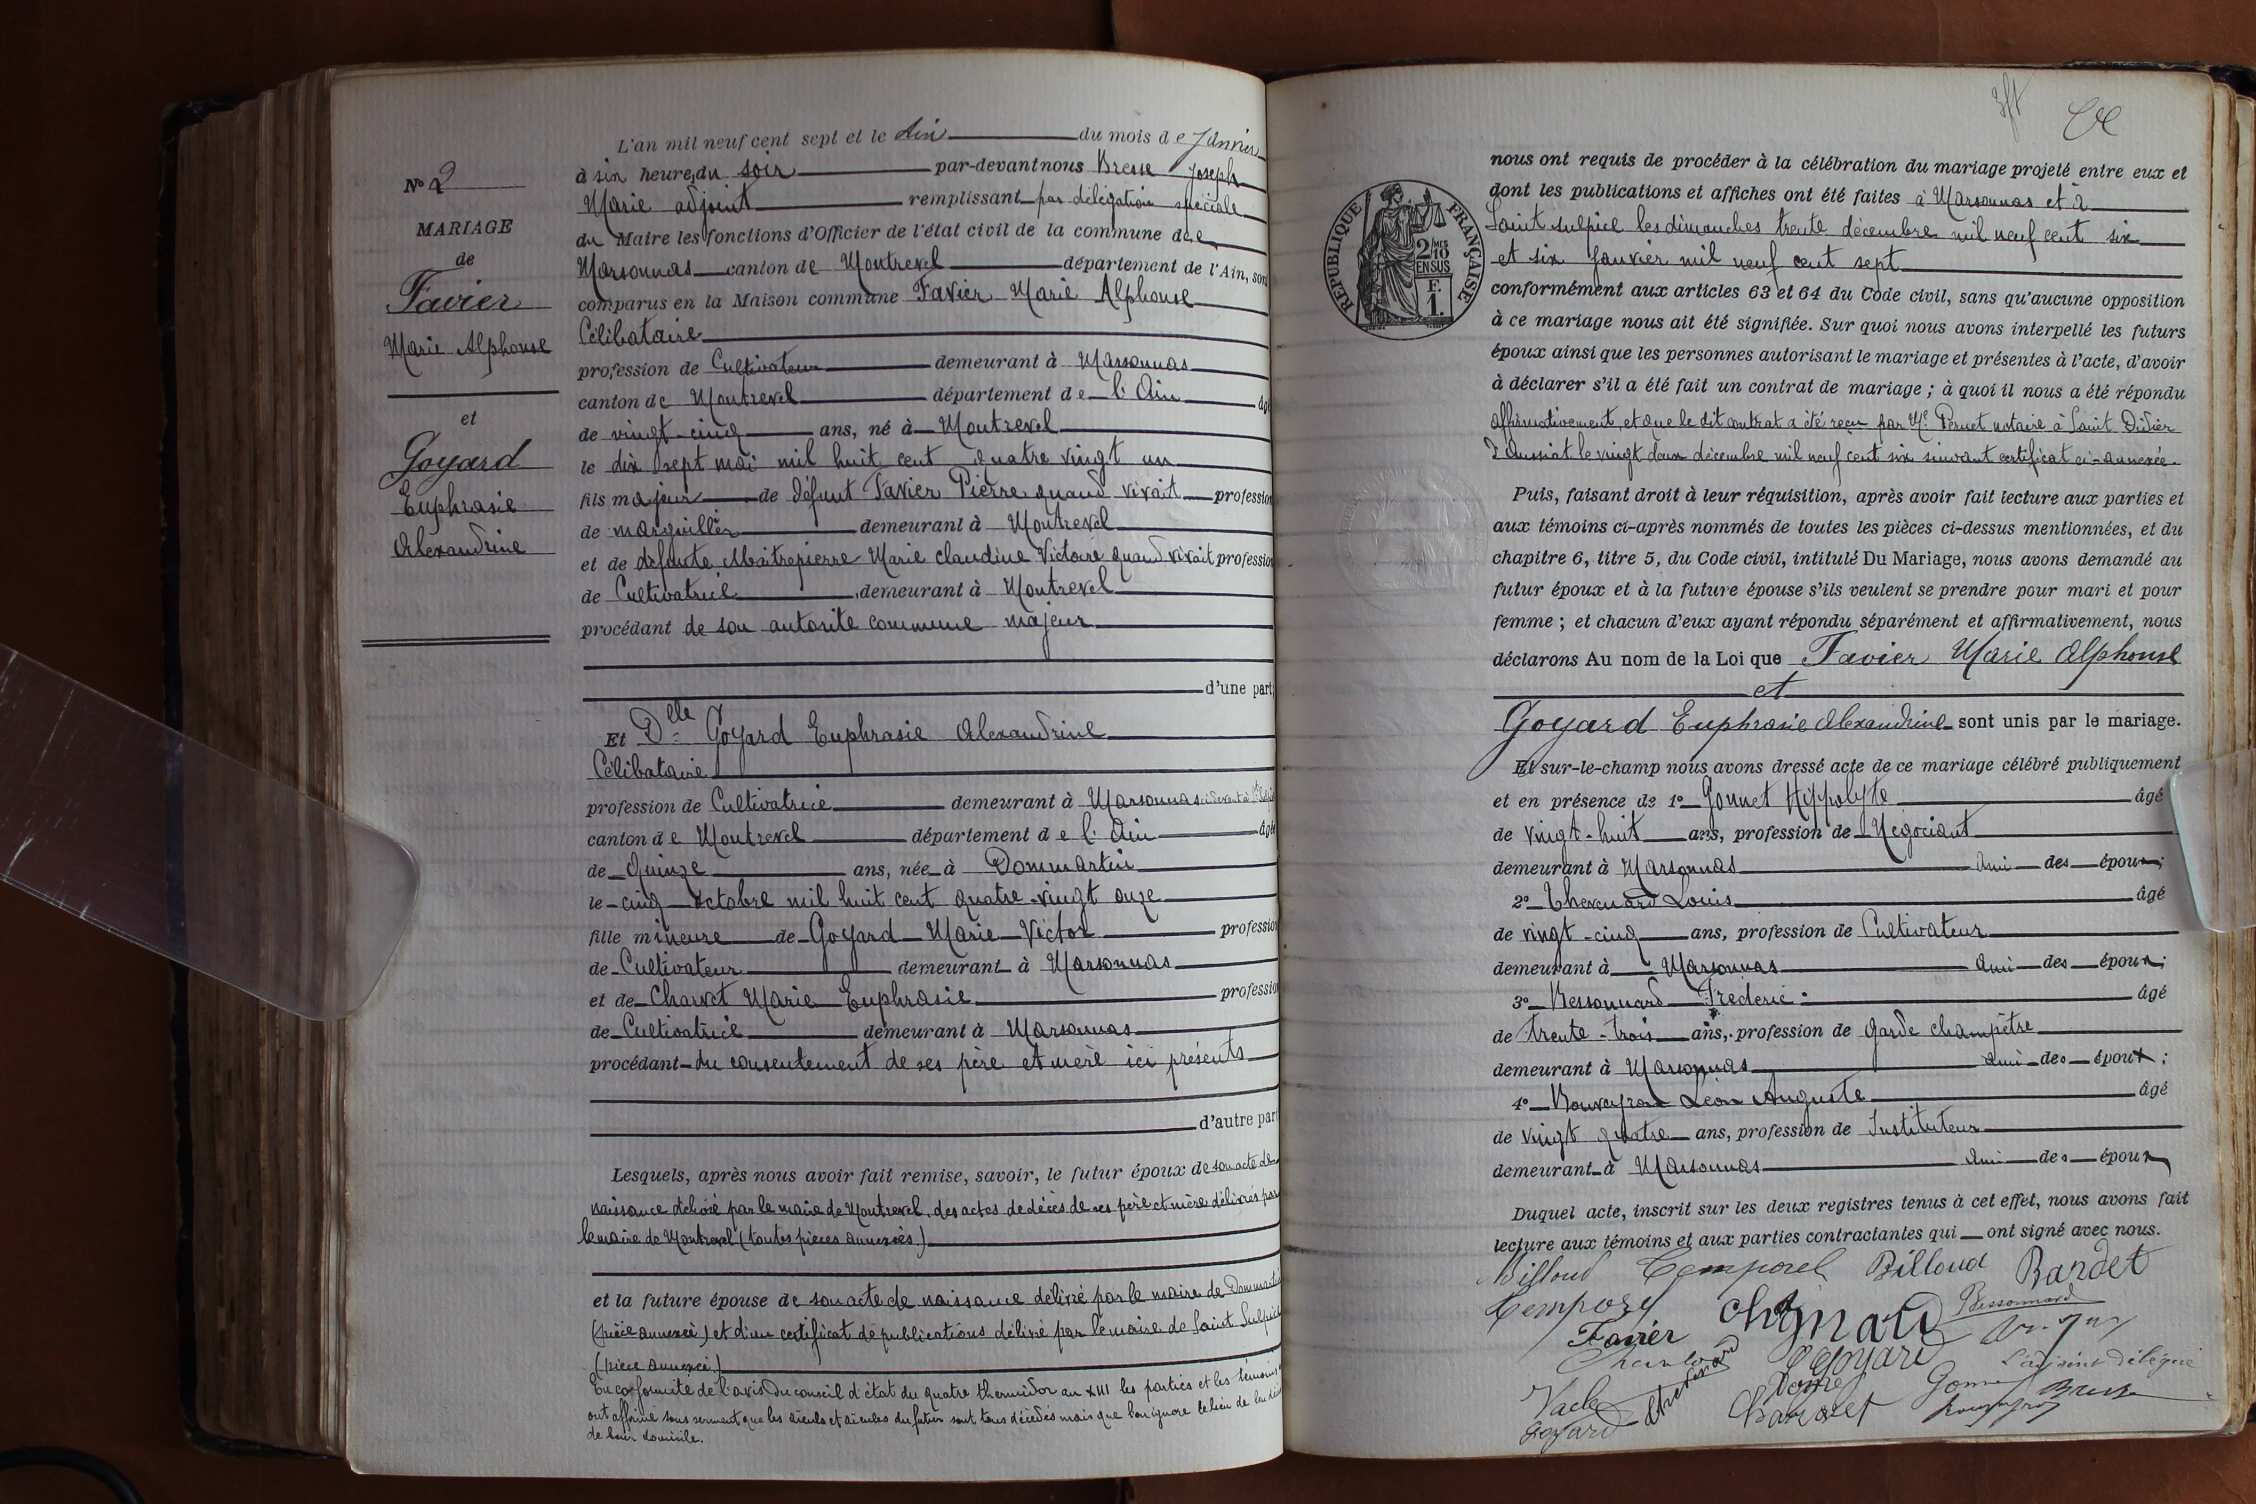 L'an mil neuf cent sept et le dix du mois de Janvier
à six heures du soir par-devant nous Bresse Joseph
Marie adjoint remplissant par délégation spéciale
du Maire les fonctions d'Officier de l'état civil de la commune de
Marsonnas canton de Montrevel département de l'Ain, sont
comparus en la Maison commune Favier Marie Alphonse
Célibataire
profession de Cultivateur demeurant à Marsonnas
canton de Montrevel département de l'Ain âgé
de vingt-cinq ans, né à Montrevel
le dix sept mai mil huit cent quatre vingt un
fils majeur de défunt Favier Pierre quand vivait profession
de marguillier demeurant à Montrevel
et de défunte Maitrepierre Marie Claudine Victoire quand vivait profession
de Cultivatrice demeurant à Montrevel
procédant de son autorité comme majeur
d'une part;
Et Delle Goyard Euphrasie Alexandrine
Célibataire
profession de Cultivatrice demeurant à Marsonnas
canton de Montrevel département de l'Ain âgée
de quinze ans, née à Dommartin
le cinq octobre mil huit cent quatre-vingt onze
fille mineure de Goyard Marie Victor profession
de Cultivateur demeurant à Marsonnas
et de Charvet Marie Euphrasie profession
de Cultivatrice demeurant à Marsonnas
procédant du consentement de ses père et mère ici présents
d'autre part
Lesquels, après nous avoir fait remise, savoir, le futur époux de son acte de
naissance délivré par le maire de Montrevel, des actes de décès de ses père et mère délivrés par
le maire de Montrevel (toutes pièces annexées)
et la future épouse de son acte de naissance délivré par le maire de Dommartin
(pièce annexée) et d'un certificat de publications délivré par le maire de Saint Sulpice
(pièce annexée)
En conformité de l'avis du conseil d'état du quatre thermidor an XIII les parties et les témoins
ont affirmé sous serment que les aïeuls et aïeules du futur sont tous décédés mais que l'on ignore le lieu de
de leur domicile.
No 2
MARIAGE
de
Favier
Marie Alphonse
et
Goyard
Euphrasie
Alexandrine
RÉPUBLIQUE FRANÇAISE
2/10 MES
EN SUS
F.
1.
nous ont requis de procéder à la célébration du mariage projeté entre eux et
dont les publications et affiches ont été faites à Marsonnas et à
Saint Sulpice les dimanches trente décembre mil neuf cent six
et six janvier mil neuf cent sept
conformément aux articles 63 et 64 du Code civil, sans qu'aucune opposition
à ce mariage nous ait été signifiée. Sur quoi nous avons interpellé les futurs
époux ainsi que les personnes autorisant le mariage et présentes à l'acte, d'avoir
à déclarer s'il a été fait un contrat de mariage ; à quoi il nous a été répondu
affirmativement, et que le dit contrat a été reçu par Me Peruet notaire à Saint Didier
d'Aussiat le vingt deux décembre mil neuf cent six suivant certificat ci-annexé.
Puis, faisant droit à leur réquisition, après avoir fait lecture aux parties et
aux témoins ci-après nommés de toutes les pièces ci-dessus mentionnées, et du
chapitre 6, titre 5, du Code civil, intitulé Du Mariage, nous avons demandé au
futur époux et à la future épouse s'ils veulent se prendre pour mari et pour
femme ; et chacun d'eux ayant répondu séparément et affirmativement, nous
déclarons Au nom de la Loi que Favier Marie Alphonse
et
Goyard Euphrasie Alexandrine sont unis par le mariage.
Et sur-le-champ nous avons dressé acte de ce mariage célébré publiquement
et en présence de 1° Gonnet Hippolyte âgé
de vingt-huit ans, profession de Négociant
demeurant à Marsonnas ami des époux;
2° Thevenard Louis âgé
de vingt-cinq ans, profession de Cultivateur
demeurant à Marsonnas ami des époux;
3° Bessonnard Frédéric âgé
de trente-trois ans, profession de garde champêtre
demeurant à Marsonnas ami des époux;
4° Bouveyron Léon Auguste âgé
de vingt quatre ans, profession de Instituteur
demeurant à Marsonnas ami des époux
Duquel acte, inscrit sur les deux registres tenus à cet effet, nous avons fait
lecture aux témoins et aux parties contractantes qui ont signé avec nous.
Billoud Temporel Billoud Bardet
Temporel Chagnard Bessonnard
Favier
Goyard L'adjoint délégué
Thevenard Gonnet Bresse
Goyard Charvet Bouveyron